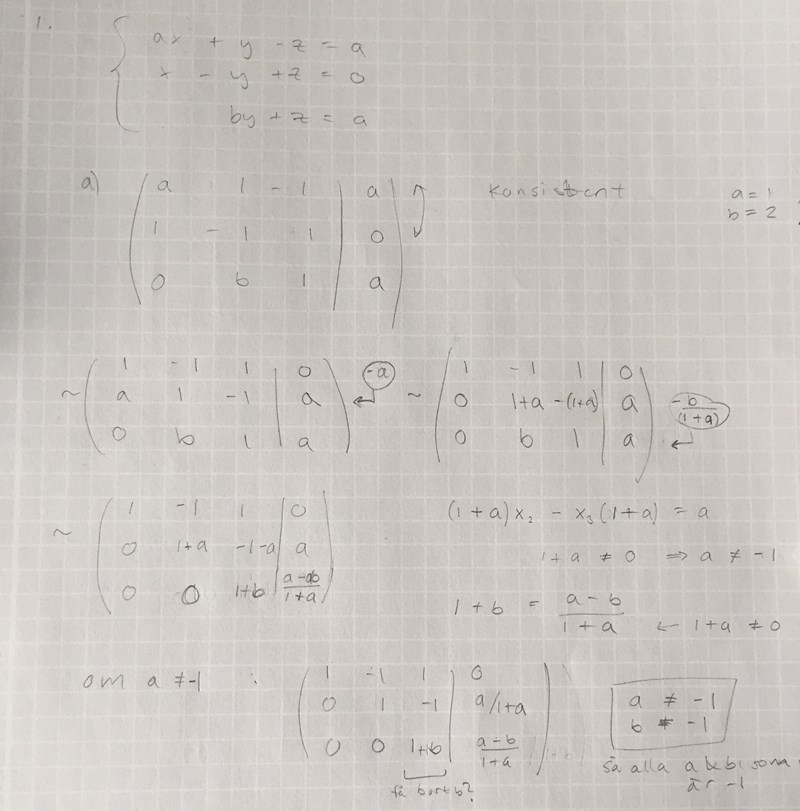 1.
ax + y - z = a
x - y + z = 0
by + z = a
a) ( a 1 -1 | a )
( 1 -1 1 | 0 )
( 0 b 1 | a )
Konsistent
a = 1
b = 2
~ ( 1 -1 1 | 0 )
( a 1 -1 | a )
( 0 b 1 | a )
-a
~ ( 1 -1 1 | 0 )
( 0 1+a -(1+a) | a )
( 0 b 1 | a )
-b/(1+a)
~ ( 1 -1 1 | 0 )
( 0 1+a -1-a | a )
( 0 0 1+b | a-ab/1+a )
(1+a)x₂ - x₃(1+a) = a
1+a ≠ 0 ⇒ a ≠ -1
1 + b = a-b/1+a ← 1+a ≠ 0
om a ≠ -1 :
( 1 -1 1 | 0 )
( 0 1 -1 | a/1+a )
( 0 0 1+b | a-b/1+a )
få bort b?
a ≠ -1
b ≠ -1
så alla a & b
är -1